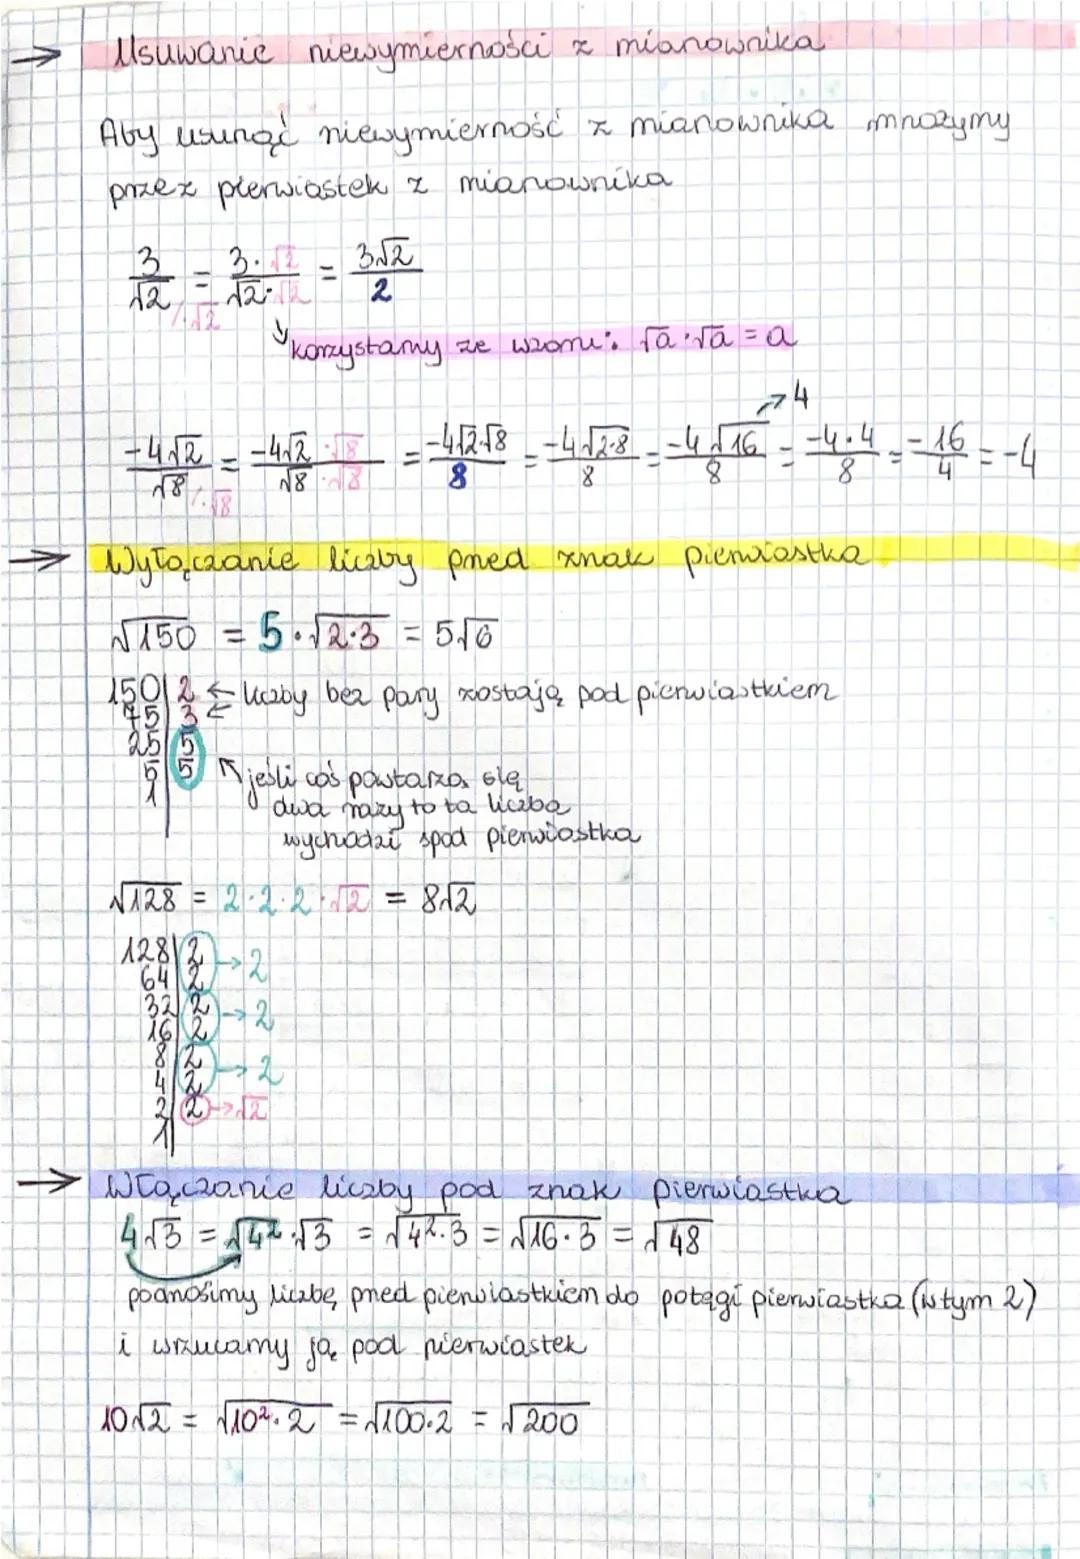 → Usuwanie niewymierności z mianownika
Aby usunąć niewymierność z mianownika mnożymy
przez pierwiastek z mianownika
3/√2 /·√2 = 3·√2/√2·√2 = 3√2/2
korzystamy ze wzoru: √a·√a = a
-4√2/√8 /·√8 = -4√2·√8/√8·√8 = -4√2·√8/8 = -4√2·8/8 = -4√16/8 → 4 = -4·4/8 = -16/4 = -4
→ Wyłączanie liczby przed znak pierwiastka
√150 = 5·√2·3 = 5√6
150|2 ← liczby bez pary zostają pod pierwiastkiem
75|3 ←
25|5
5|5 jeśli coś powtarza się
1| dwa razy to ta liczba
wychodzi spod pierwiastka
√128 = 2·2·2·√2 = 8√2
128|2 → 2
64|2
32|2 → 2
16|2
8|2 → 2
4|2
2|2 → √2
1|
→ Włączanie liczby pod znak pierwiastka
4√3 = √4²·√3 = √4²·3 = √16·3 = √48
podnosimy liczbę przed pierwiastkiem do potęgi pierwiastka (w tym 2)
i wrzucamy ją pod pierwiastek
10√2 = √10²·2 = √100·2 = √200